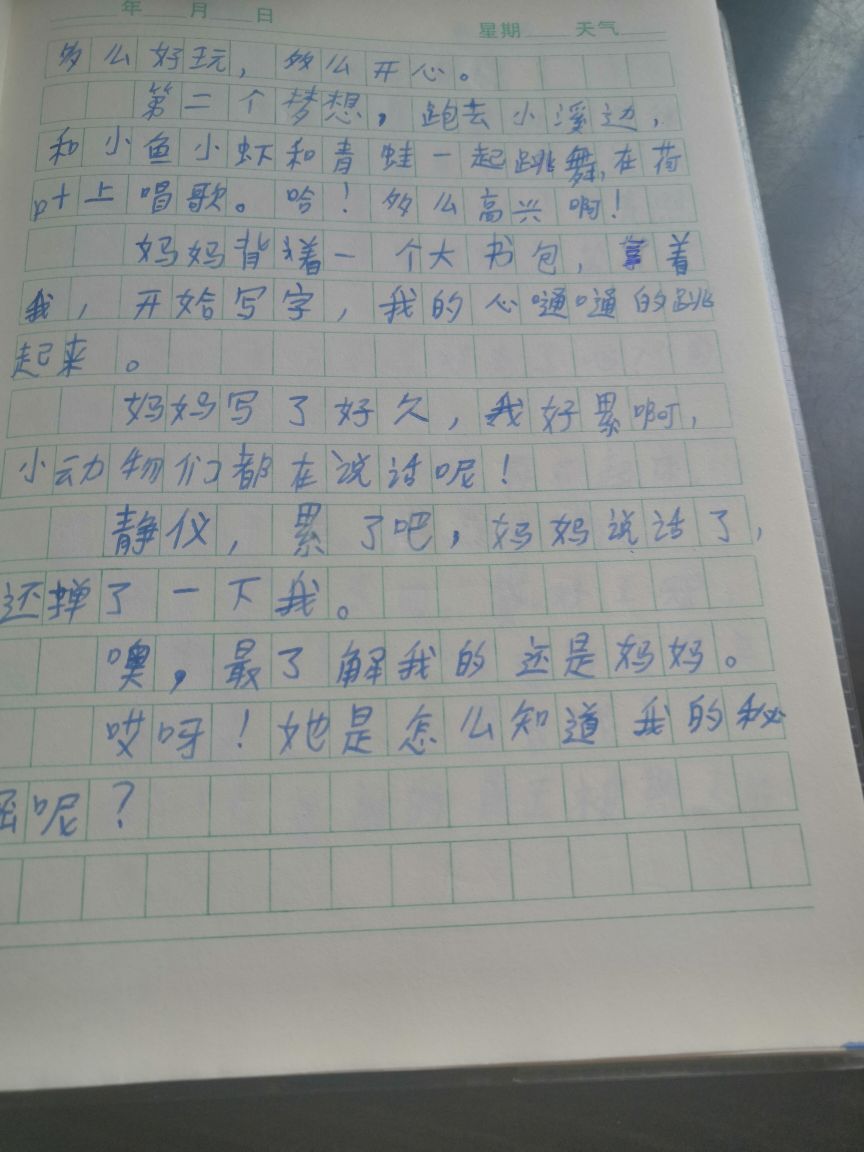 年 月 日
星期 天气
多么好玩，多么开心。
第二个梦想，跑去小溪边，
和小鱼小虾和青蛙一起跳舞，在荷
叶上唱歌。哈！多么高兴啊！
妈妈背着一个大书包，拿着
我，开始写字，我的心嗵嗵的跳
起来。
妈妈写了好久，我好累啊，
小动物们都在说话呢！
静仪，累了吧，妈妈说话了，
还掸了一下我。
噢，最了解我的还是妈妈。
哎呀！她是怎么知道我的秘
密呢？